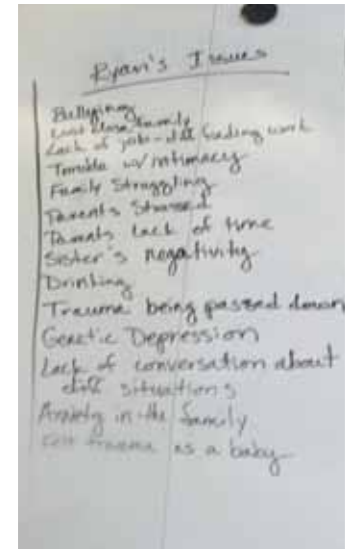 Ryan's Issues
Bullying
Lost close family
Lack of job - diff finding work
Trouble w/intimacy
Family Struggling
Parents Stressed
Parents lack of time
Sister's negativity
Drinking
Trauma being passed down
Genetic Depression
Lack of conversation about
diff situations
Anxiety in the family
trauma as a baby